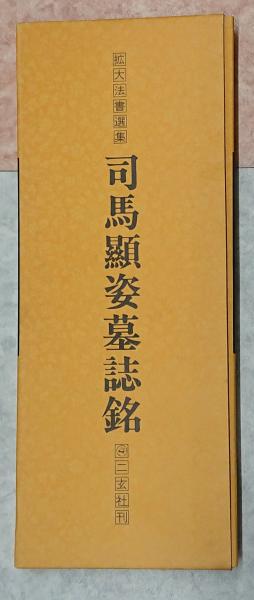 拡大法書選集
司馬顯姿墓誌銘
二玄社刊